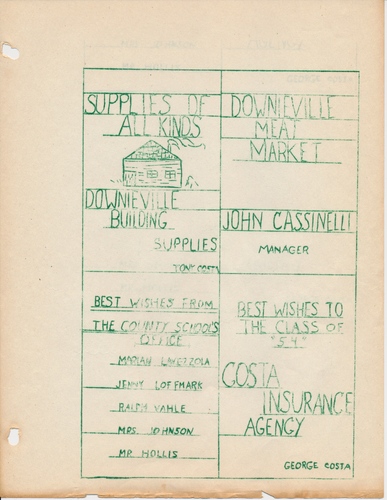 SUPPLIES OF
ALL KINDS
DOWNIEVILLE
BUILDING
SUPPLIES
TONY COSTA
DOWNIEVILLE
MEAT
MARKET
JOHN CASSINELLI
MANAGER
BEST WISHES FROM
THE COUNTY SCHOOLS
OFFICE
MARIAN LAVEZZOLA
JENNY LOFFMARK
RALPH VAHLE
MRS. JOHNSON
MR HOLLIS
BEST WISHES TO
THE CLASS OF
"54"
COSTA
INSURANCE
AGENCY
GEORGE COSTA